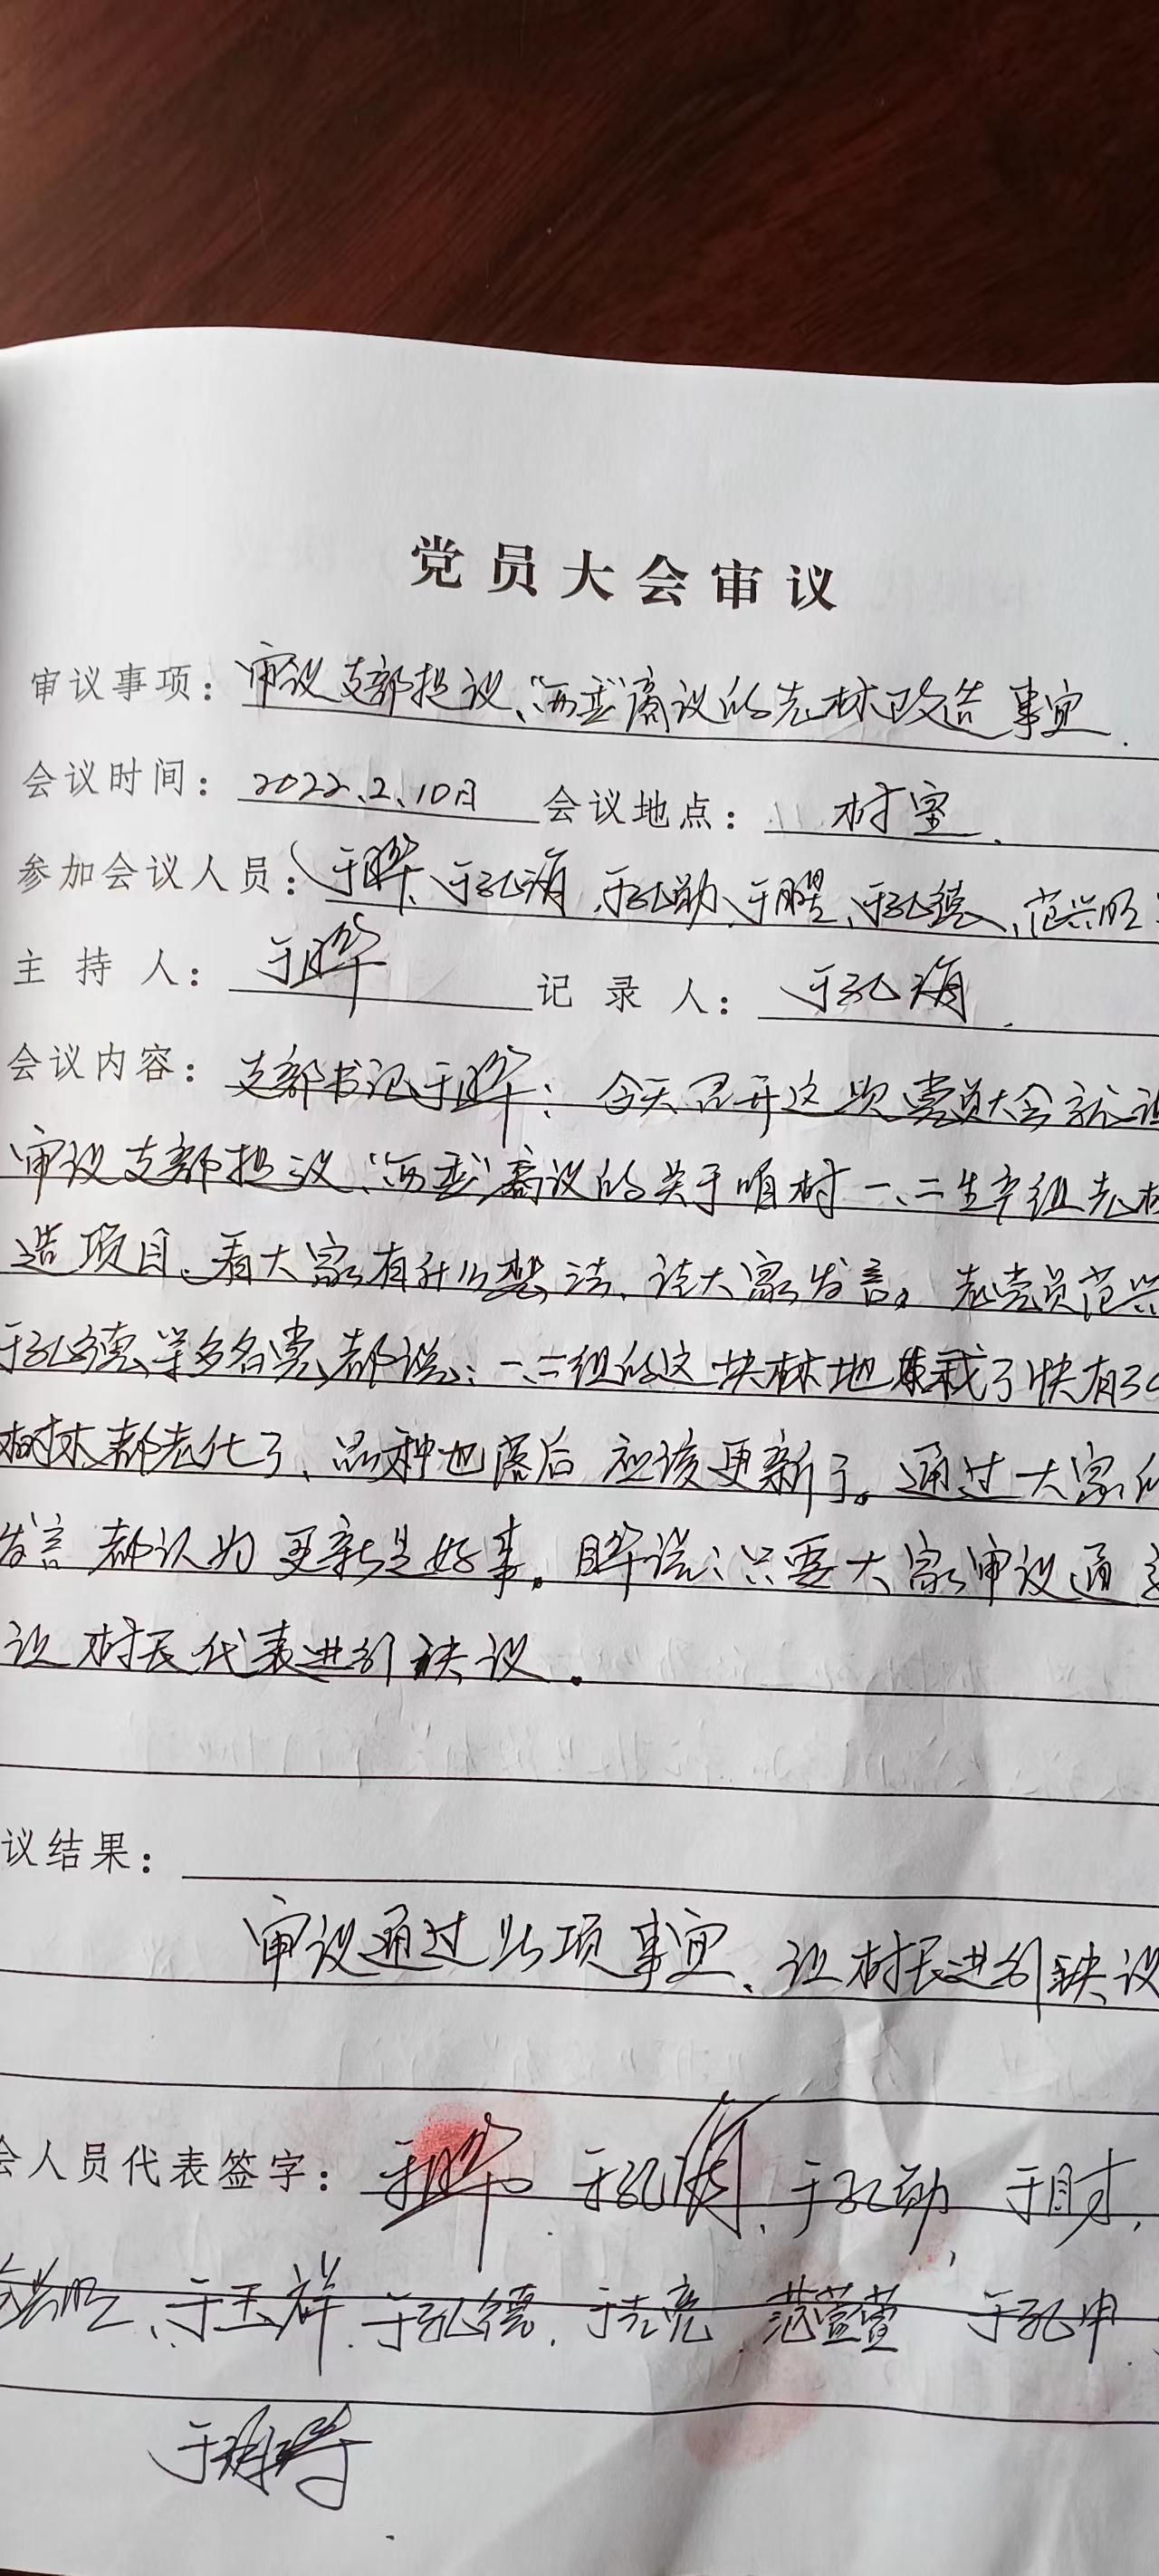 党员大会审议
审议事项：审议支部提议、“两委”商议的老林改造事宜.
会议时间：2022.2.10日 会议地点：村室.
参加会议人员：于晔、于孔涓、于孔勋、于翠、于孔德、范兴旺
主持人：于晔 记录人：于孔涓.
会议内容：支部书记于晔：今天召开这次党员大会就让
审议支部提议、“两委”商议的关于咱村一、二生产组老林
造项目、看大家有什么想法、让大家发言。老党员范兴
于孔德等多名党都说：一、二组的这块林地栽了快有30
树木都老化了、品种也落后 应该更新了。通过大家的
发言 都认为更新是好事。晔说：只要大家审议通过
让村民代表进行袂议.
议结果：
审议通过此项事宜、让村民进行袂议
会人员代表签字：于晔、于孔涓、于孔勋、于才、
兴旺、于玉祥、于孔德、于克亮、范萱萱 于孔申.
于